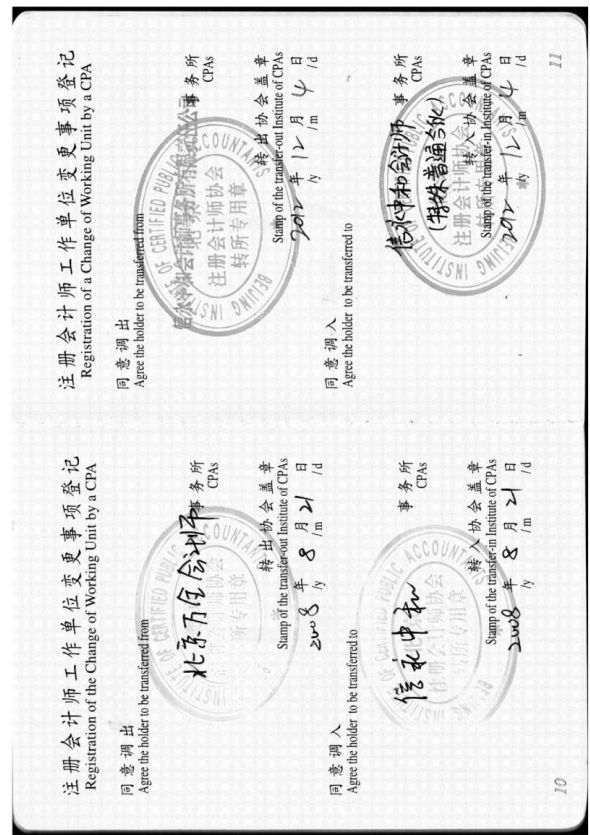 注册会计师工作单位变更事项登记
Registration of the Change of Working Unit by a CPA
同意调出
Agree the holder to be transferred from
北京万全会计师事务所
CPAs
转出协会盖章
Stamp of the transfer-out Institute of CPAs
2008 年 8 月 21 日
/y /m /d
同意调入
Agree the holder to be transferred to
信永中和 事务所
CPAs
转入协会盖章
Stamp of the transfer-in Institute of CPAs
2008 年 8 月 21 日
/y /m /d
10
注册会计师工作单位变更事项登记
Registration of a Change of Working Unit by a CPA
同意调出
Agree the holder to be transferred from
信永中和会计师事务所有限责任公司 事务所
CPAs
BEIJING INSTITUTE OF CERTIFIED PUBLIC ACCOUNTANTS
注册会计师协会
转所专用章
转出协会盖章
Stamp of the transfer-out Institute of CPAs
2012 年 12 月 4 日
/y /m /d
同意调入
Agree the holder to be transferred to
信永中和会计师 事务所
(特殊普通合伙) CPAs
注册会计师协会
转入协会盖章
Stamp of the transfer-in Institute of CPAs
2012 年 12 月 4 日
/y /m /d
11